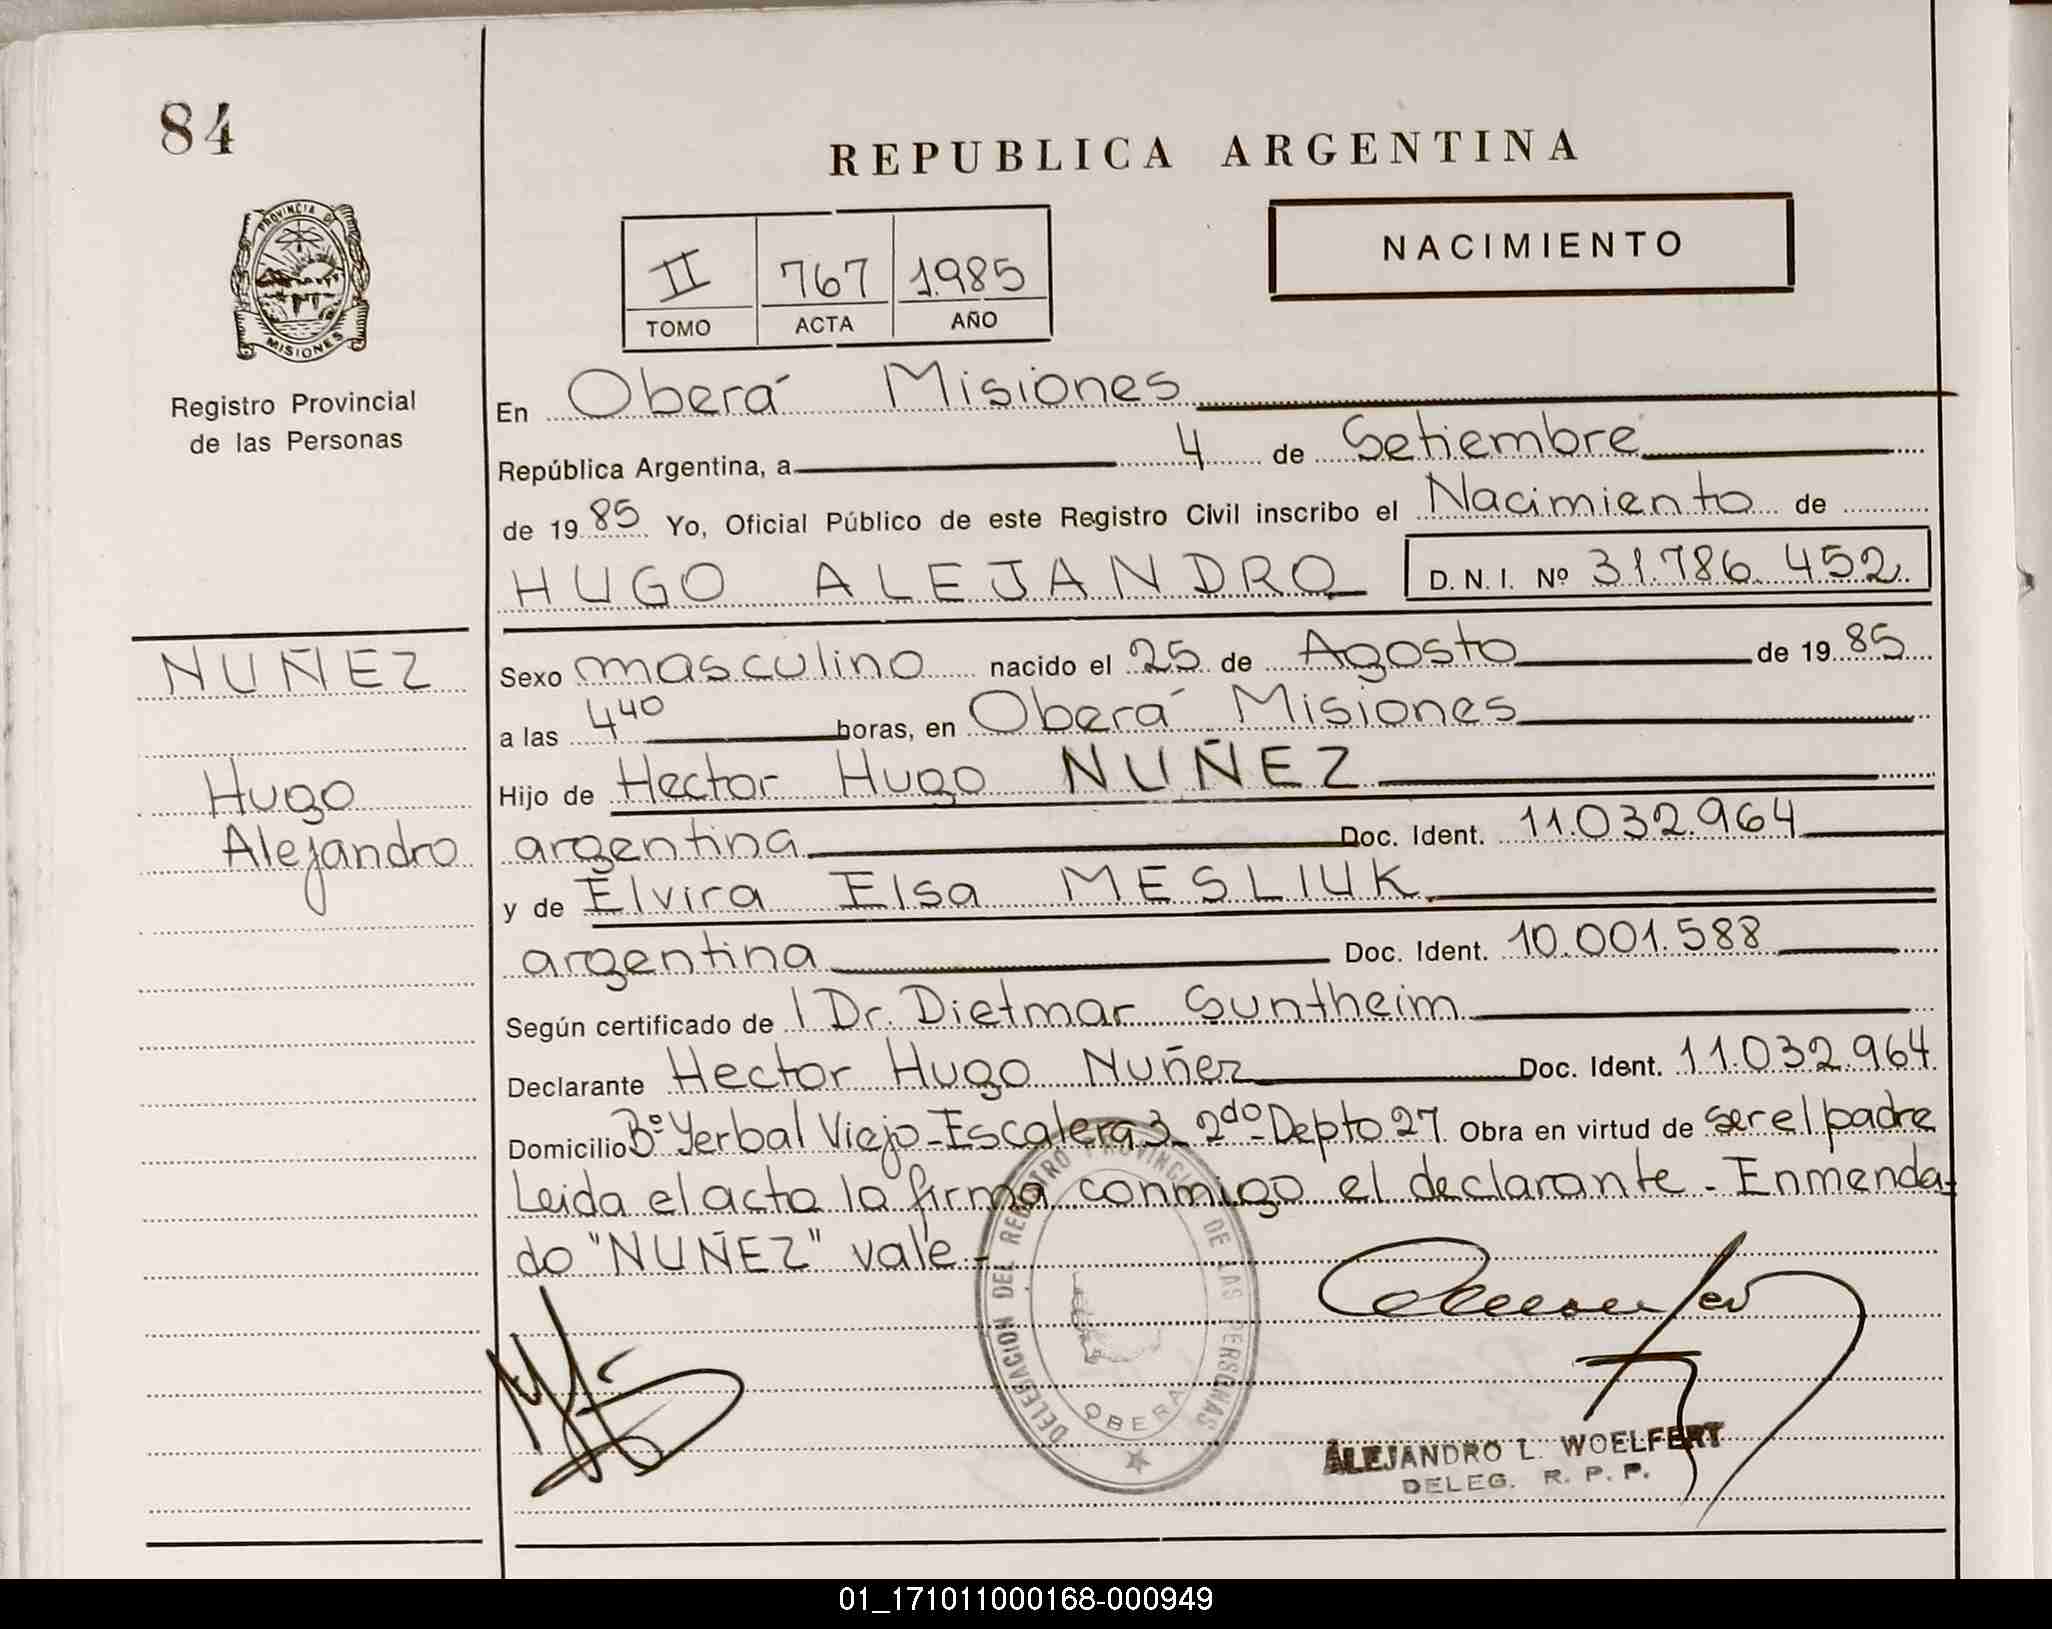 84
REPUBLICA ARGENTINA
PROVINCIA DE
MISIONES
Registro Provincial
de las Personas
II 767 1.985
TOMO ACTA AÑO
NACIMIENTO
En Oberá Misiones
República Argentina, a 4 de Setiembre
de 19 85 Yo, Oficial Público de este Registro Civil inscribo el Nacimiento de
HUGO ALEJANDRO D.N.I. Nº 31.786.452
NUÑEZ
Hugo
Alejandro
Sexo masculino nacido el 25 de Agosto de 19 85
a las 4 40 horas, en Oberá Misiones
Hijo de Hector Hugo NUÑEZ
argentina Doc. Ident. 11.032.964
y de Elvira Elsa MESLIUK
argentina Doc. Ident. 10.001.588
Según certificado de l Dr. Dietmar Suntheim
Declarante Hector Hugo Nuñez Doc. Ident. 11.032.964
Domicilio Bº Yerbal Viejo-Escalera 3-2do-Depto 27 Obra en virtud de ser el padre
Leida el acta la firma conmigo el declarante - Enmenda-
do "NUÑEZ" vale.-
DELEGACION DEL REGISTRO PROVINCIAL DE LAS PERSONAS
OBERA
ALEJANDRO L. WOELFERT
DELEG. R. P. P.
01_171011000168-000949